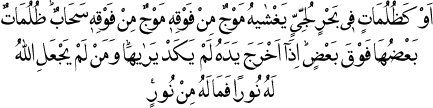 اَوْ كَظُلُمَاتٍ فِى بَحْرٍ لُجِّىٍّ يَغْشٰيهُ مَوْجٌ مِنْ فَوْقِهٖ مَوْجٌ مِنْ فَوْقِهٖ سَحَابٌ ظُلُمَاتٌ
بَعْضُهَا فَوْقَ بَعْضٍ اِذَٓا اَخْرَجَ يَدَهُ لَمْ يَكَدْ يَرٰيهَا وَمَنْ لَمْ يَجْعَلِ اللّٰهُ
لَهُ نُورًا فَمَا لَهُ مِنْ نُورٍ